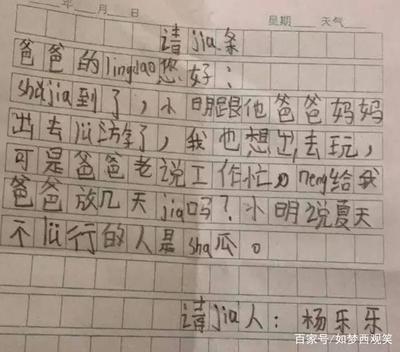 年 月 日 星期 天气
请jia条
爸爸的lingdao您好：
shǔjia到了，小明跟他爸爸妈妈
出去lü游了，我也想出去玩，
可是爸爸老说工作忙，neng给我
爸爸放几天jia吗？小明说夏天
不lü行的人是sha瓜。
请jia人：杨乐乐
百家号/如梦西观笑